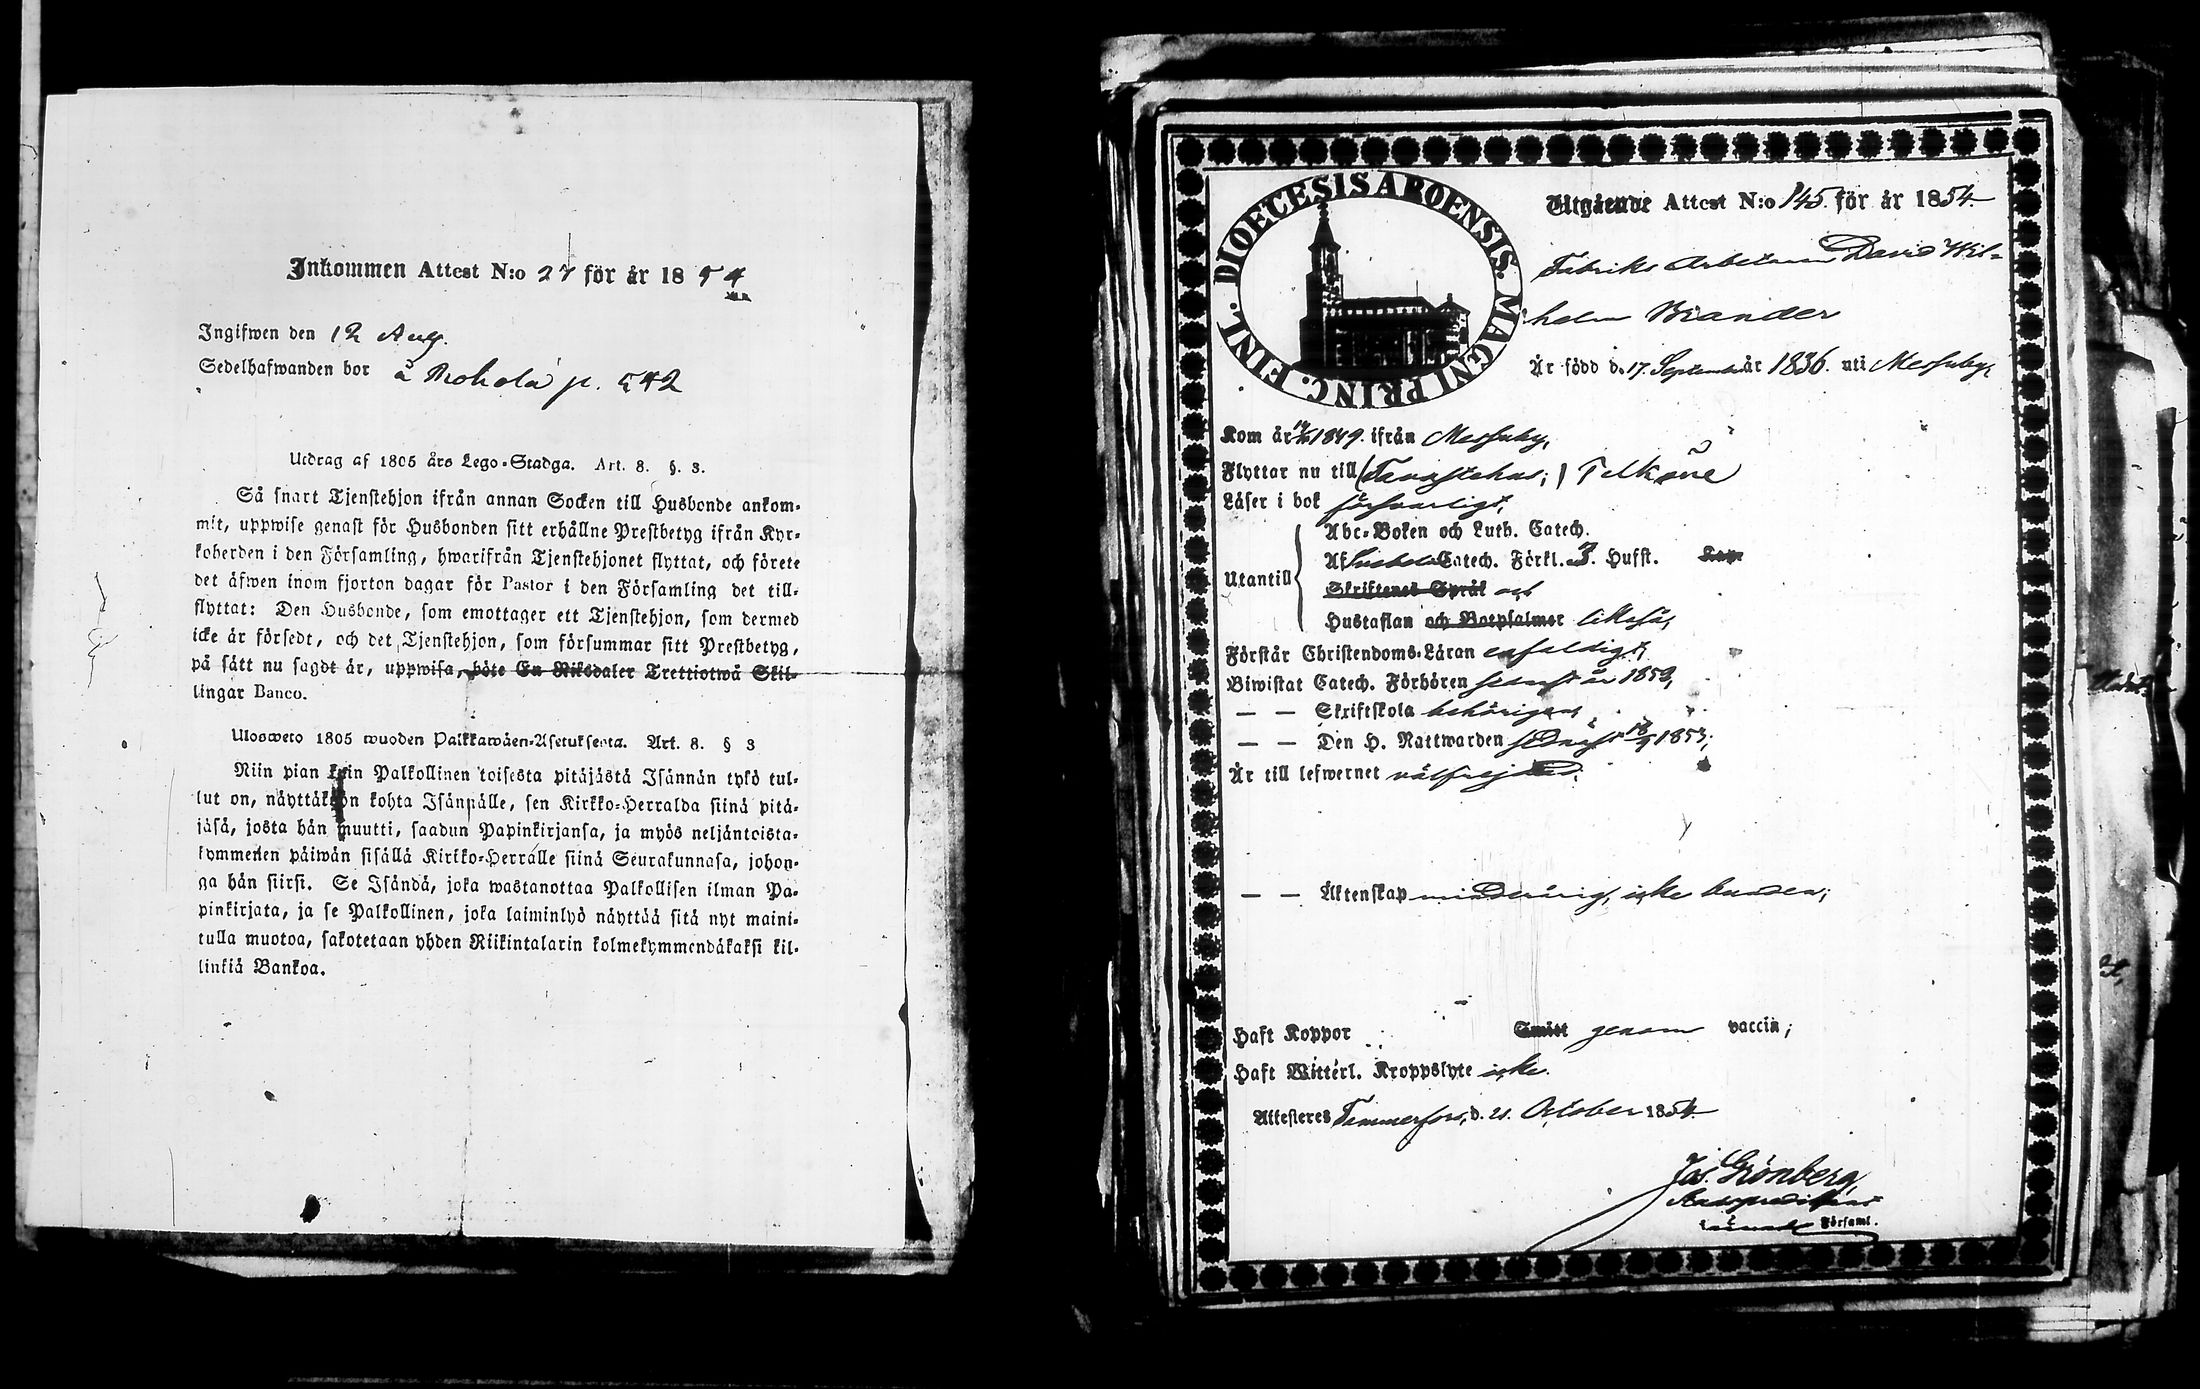 Inkommen Attest N:o 27 för år 1854
Ingifwen den 12 Aug.
Sedelhafwanden bor å Rokola p. 542
Utdrag af 1805 års Lego-Stadga. Art. 8. §. 3.
Så snart Tjenstehjon ifrån annan Socken till Husbonde ankom-
mit, uppwise genast för Husbonden sitt erhållne Prestbetyg ifrån Kyr-
koherden i den Församling, hwarifrån Tjenstehjonet flyttat, och förete
det äfwen inom fjorton dagar för Pastor i den Församling det till-
flyttat: Den Husbonde, som emottager ett Tjenstehjon, som dermed
icke är försedt, och det Tjenstehjon, som försummar sitt Prestbetyg,
på sätt nu sagdt är, uppwisa, böte En Riksdaler Trettiotwå Skil-
lingar Banco.
Ulosweto 1805 wuoden Palkkawäen-Asetuksesta. Art. 8. § 3
Niin pian kuin Palkollinen toisesta pitäjästä Isännän tykö tul-
lut on, näyttäköön kohta Isännälle, sen Kirkko-Herralda siinä pitä-
jäsä, josta hän muutti, saadun Papinkirjansa, ja myös neljäntoista-
kymmenen päiwän sisällä Kirkko-Herralle siinä Seurakunnasa, johon-
ga hän siirsi. Se Isändä, joka wastanottaa Palkollisen ilman Pa-
pinkirjata, ja se Palkollinen, joka laiminlyö näyttää sitä nyt maini-
tulla muotoa, sakotetaan yhden Riikintalarin kolmekymmendäkaksi kil-
linkiä Bankoa.
DIOECESIS ABOENSIS. MAGNI PRINC. FINL.
Utgående Attest N:o 145. för år 1854.
Fabriks Arbetaren David Wil-
helm Brander
Är född d. 17. September år 1836. uti Messuby,
Kom år 1849. ifrån Messuby,
Flyttar nu till (Tavastehus;) Pelkäne
Läser i bok försvarligt,
Utantill
Abc-Boken och Luth. Catech.
Af Catech. Förkl. 3. Hufst. Kap.
Skriftenes Språk och
Hustaflan och Botpsalmer likaså,
Förstår Christendoms-Läran enfaldigt,
Biwistat Catech. Förhören senast år 1853,
— — Skriftskola behörigen,
— — Den H. Nattwarden sednast 18/9 1853;
Är till lefwernet välfrejdad.
— — Äktenskap minderårig, icke bunden;
Haft Koppor Smitt genom vaccin;
Haft Witterl. Kroppslyte icke.
Attesteres Tammerfors, d. 21. October 1854.
Jos. Grönberg,
Församl.